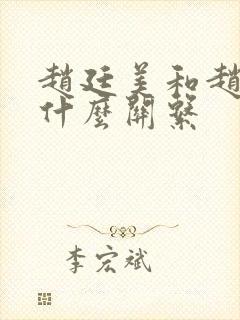 趙廷美和趙
什麼關繫
李宏斌